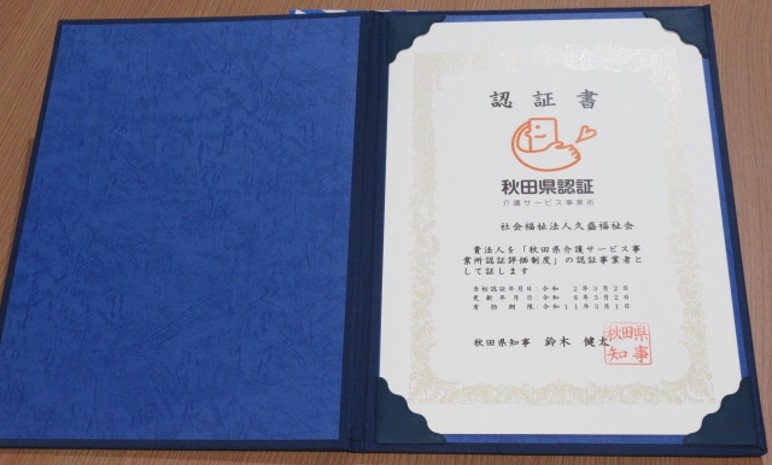 認証書
秋田県認証
介護サービス事業所
社会福祉法人久盛福祉会
貴法人を「秋田県介護サービス事
業所認証評価制度」の認証事業者と
して証します
当初認証年月日：令和 2年3月2日
更新年月日：令和 8年3月2日
有効期限：令和11年3月1日
秋田県知事 鈴木 健太
秋田県
知事